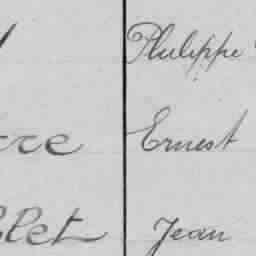 Philippe
rre Ernest
llet Jean